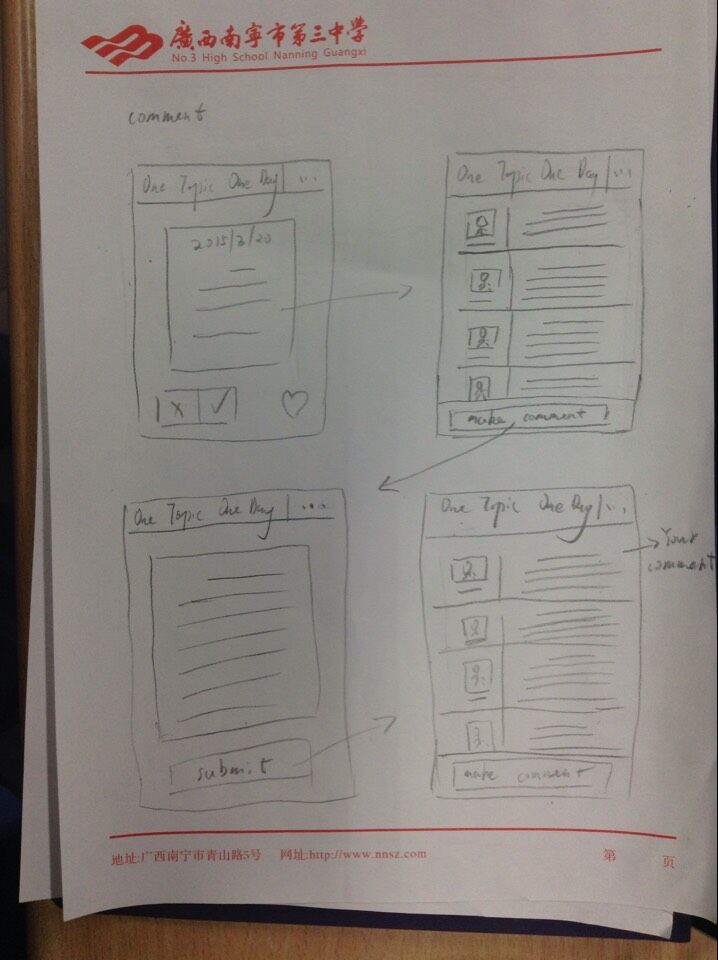 廣西南寧市第三中學
No.3 High School Nanning Guangxi
comment
One Topic One Day | ...
2015/3/20
X ✓
One Topic One Day | ...
make comment
One Topic One Day | ...
submit
One Topic One Day | ...
Your
comment
make comment
地址:广西南宁市青山路5号 网址:http://www.nnsz.com 第 页